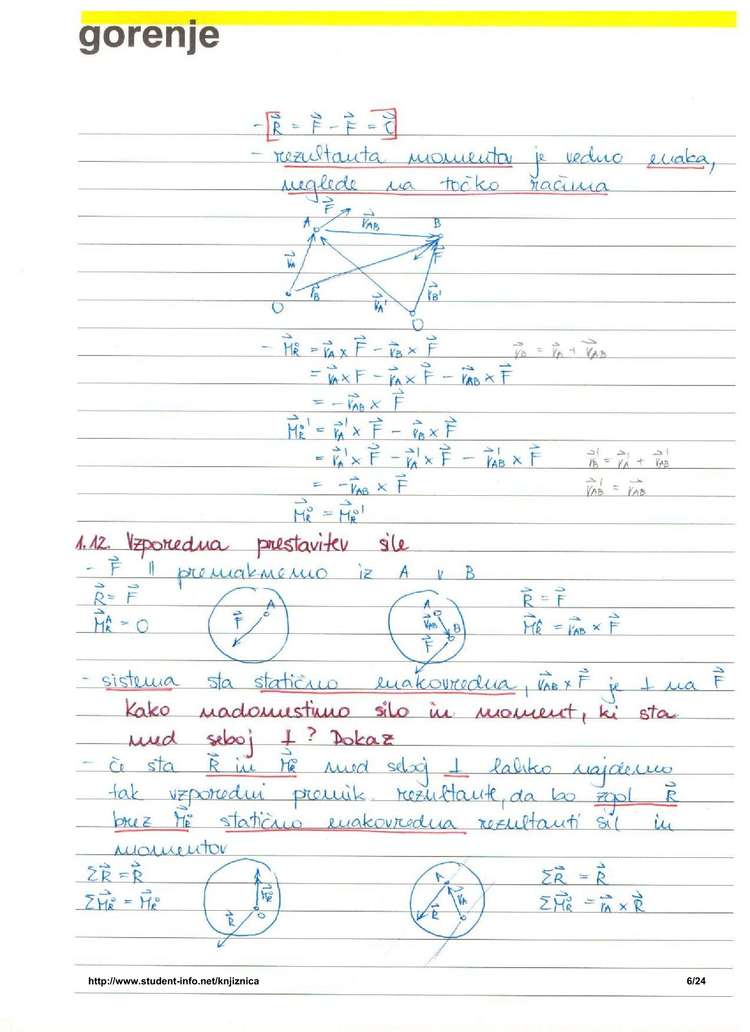 gorenje
- R⃗ = F⃗ - F⃗ = 0⃗
- rezultanta momenta je vedno enaka,
neglede na točko računa
F⃗
A r⃗AB B
r⃗A F⃗
r⃗B r⃗A' r⃗B'
O O
- M⃗R° = r⃗A × F⃗ - r⃗B × F⃗ r⃗B = r⃗A + r⃗AB
= r⃗A × F - r⃗A × F⃗ - r⃗AB × F⃗
= - r⃗AB × F⃗
M⃗R°' = r⃗A' × F⃗ - r⃗B × F⃗
= r⃗A' × F⃗ - r⃗A' × F⃗ - r⃗AB' × F⃗ r⃗B' = r⃗A' + r⃗AB'
= - r⃗AB × F⃗ r⃗AB' = r⃗AB
M⃗R° = M⃗R°'
1.12. Vzporedna prestavitev sile
- F⃗ || premaknemo iz A v B
R⃗ = F⃗ A F⃗ A r⃗AB B F⃗ R⃗ = F⃗
M⃗RA = 0 M⃗RA = r⃗AB × F⃗
- sistema sta statično enakovredna, r⃗AB × F⃗ je ⊥ na F⃗
Kako nadomestimo silo in moment, ki sta
med seboj ⊥? Dokaz
- Če sta R⃗ in M⃗R° med seboj ⊥ lahko najdemo
tak vzporedni premik rezultante, da bo zgolj R⃗
brez M⃗R° statično enakovredna rezultanti sil in
momentov
ΣR⃗ = R⃗ M⃗R° O R⃗ A r⃗A R⃗ O ΣR⃗ = R⃗
ΣM⃗R° = M⃗R° ΣM⃗R° = r⃗A × R⃗
http://www.student-info.net/knjiznica 6/24